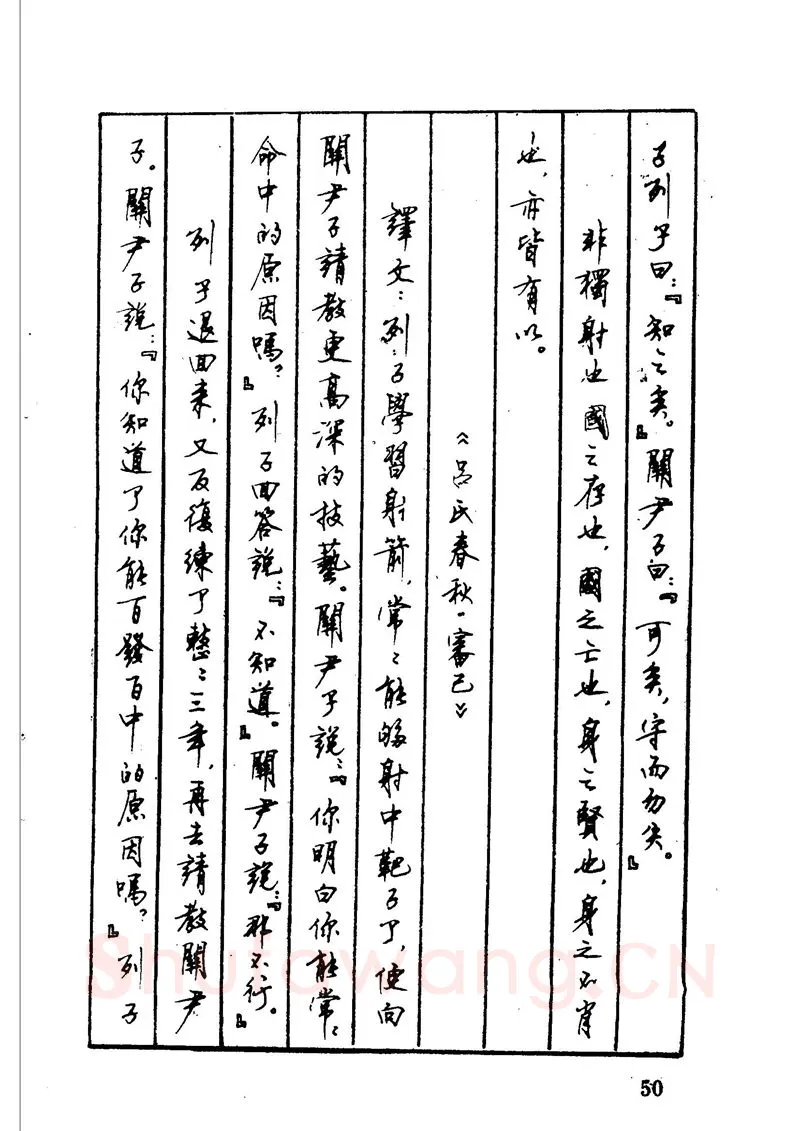 子列子曰：『知之矣。』關尹子曰：『可矣，守而勿失。』
非獨射也國之存也，國之亡也，身之賢也，身之不肖
也，亦皆有以。
《呂氏春秋·審己》
譯文：列子學習射箭，常〻能够射中靶子了，便向
關尹子請教更高深的技藝。關尹子說：『你明白你能常〻
命中的原因嗎？』列子回答說：『不知道。』關尹子說：『那不行。』
列子退回来，又反復練了整〻三年，再去請教關尹
子。關尹子說：『你知道了你能百發百中的原因嗎？』列子
Shufawang.CN
50